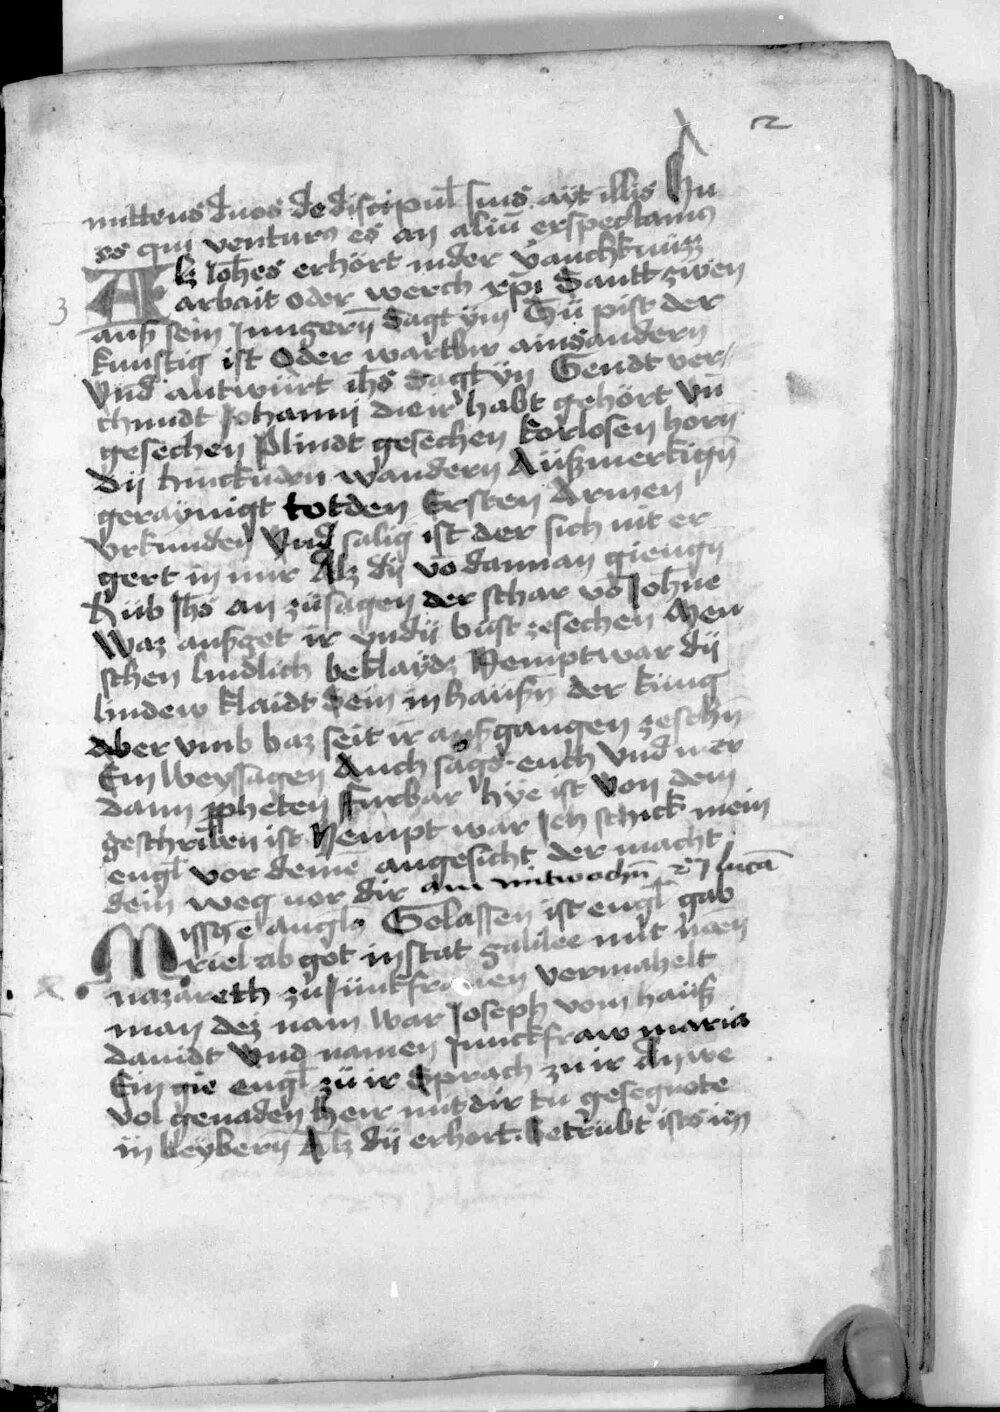 2
mittens duos de discipul̄ suis ayt illis Tu
es qui venturꝰ es an aliū exspectamꝰ
Alz Ioh̄es erhört inder vanchknüzz
arbait oder werch xp̄i Santt zwen
3
auß sein Jungern̄ Sagt ym̄ Dü pist der
kunftig ist Oder wart bir ains andern
Vnd antwürt ih̄s Sagt yn̄ Gendt ver⸗
chundt Johanni die ir habt gehört vn̄
gesechen Plindt gesechen torlosen horn
Dij hinckndn wandern Aüßmerkign̄
geraynigt totden Ersten Armen
vrkunden Vnd salig ist der sich nit er
gert in mir Alz dij vō dannan giengn
Hüb Jh̄s an züsagen der schar vō Joh̄ne
Waz außget ir yndij büst zesechen Men
schen lindlich beklaydz Nempt war dij
lindew klaidt sein in haüsn̄ der küng
Aber vmb baz seit ir außgangen zesehn̄
Ein weyssagen Auch sag euch vnd mer
dann ꝓpheten Furbar hye ist Von dem
geschriben ist Nempt war Ich schick mein
engl̄ vor deinē angesicht der macht
dein weg vor dir am mitwochn̄ lucā
Missꝰ ē anglꝰ Gelassen ist engl̄ gab
riel ab got in stat galilee mit namen
nazareth zü Jünkfrawen vermahelt
man dez nam war Joseph vom hauß
dauidt Vnd namen Junckfraw maria
Ein gie engl̄ zü ir Sprach zu ir
vol genaden herr mit dir tu gesegnote
in weybern̄ Alz dij erhort. betrübt ist